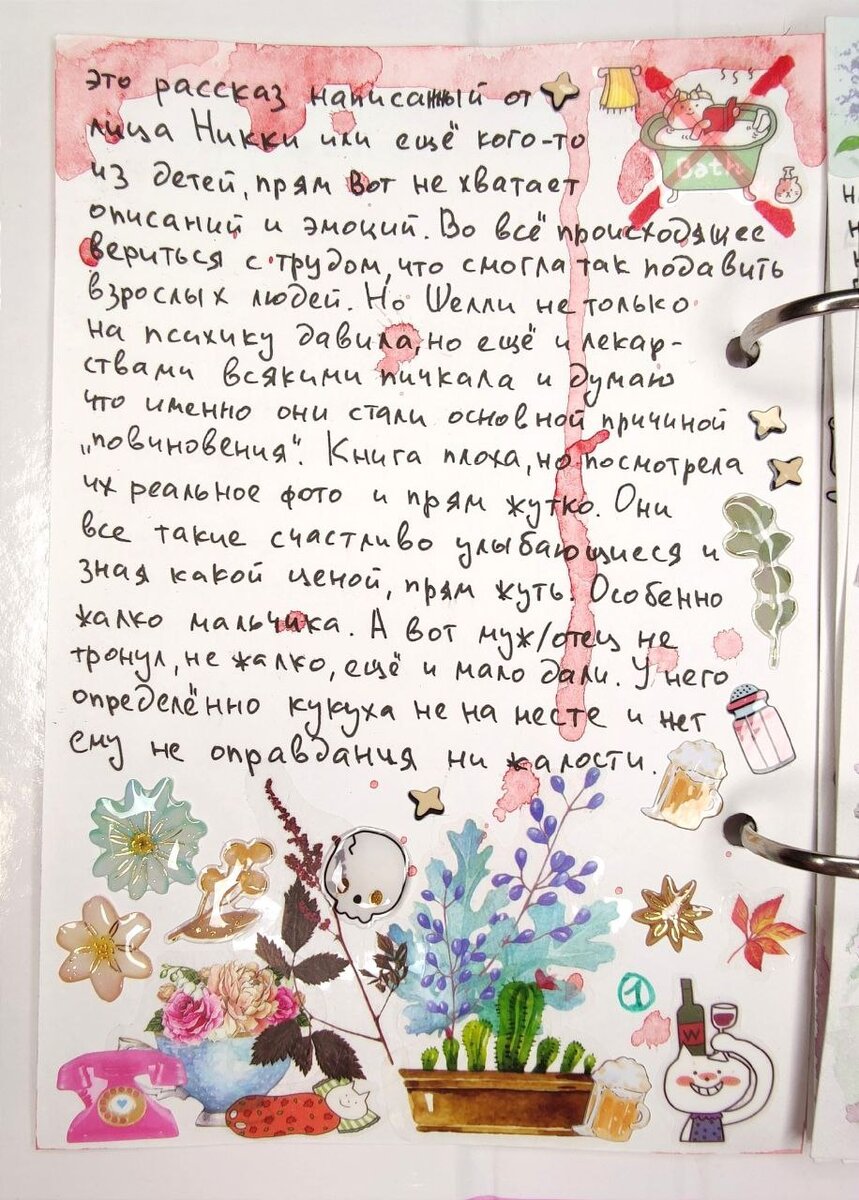 это рассказ написанный от
лица Никки или ещё кого-то
из детей, прям вот не хватает
описаний и эмоций. Во всё происходящее
вериться с трудом, что смогла так подавить
взрослых людей. Но Шелли не только
на психику давила, но ещё и лекар-
ствами всякими пичкала и думаю
что именно они стали основной причиной
„повиновения". Книга плоха, но посмотрела
их реальное фото и прям жутко. Они
все такие счастливо улыбающиеся и
зная какой ценой, прям жуть. Особенно
жалко мальчика. А вот муж/отец не
тронул, не жалко, ещё и мало дали. У него
определённо кукуха не на месте и нет
ему не оправдания ни жалости.
Bath
1
W